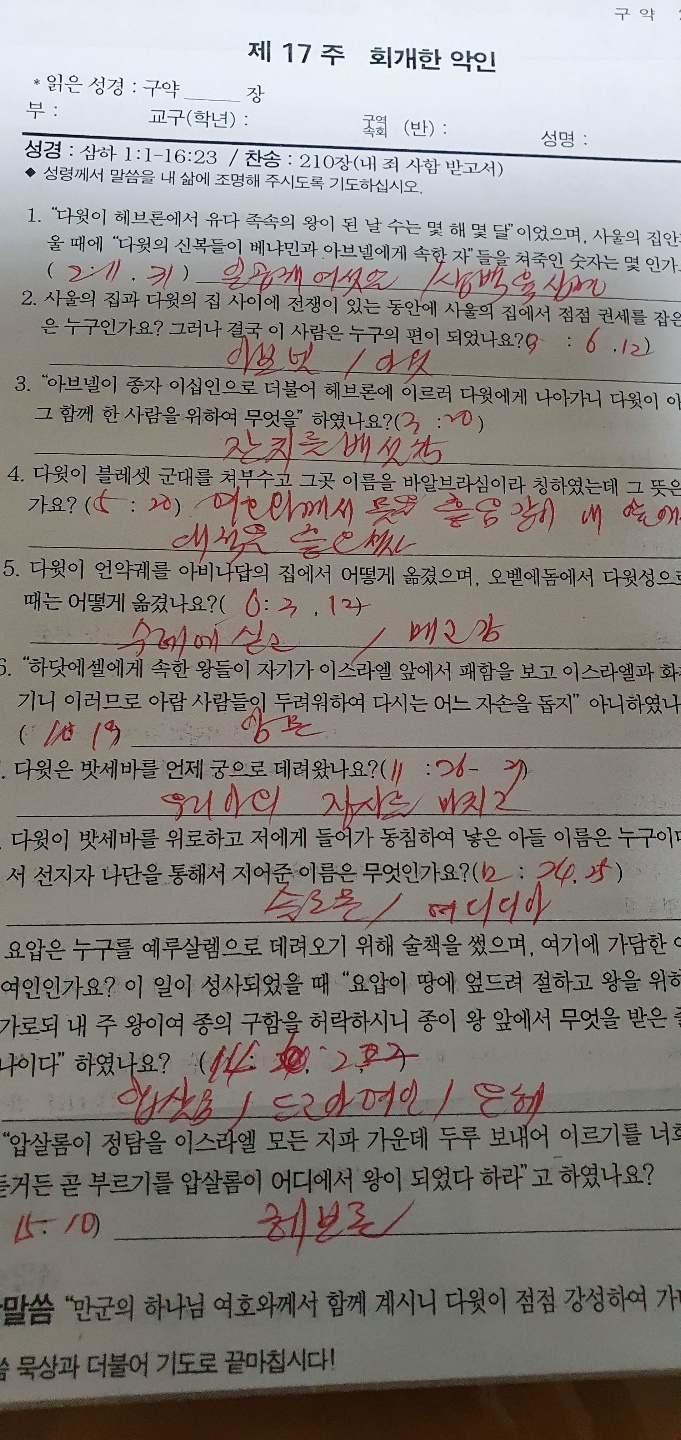 구 약
제 17 주 회개한 악인
* 읽은 성경 : 구약 _____ 장
부 : 교구(학년) : 구역 속회 (반) : 성명 :
성경 : 삼하 1:1-16:23 / 찬송 : 210장(내 죄 사함 받고서)
◆ 성령께서 말씀을 내 삶에 조명해 주시도록 기도하십시오.
1. "다윗이 헤브론에서 유다 족속의 왕이 된 날 수는 몇 해 몇 달"이었으며, 사울의 집안
울 때에 "다윗의 신복들이 베냐민과 아브넬에게 속한 자"들을 쳐죽인 숫자는 몇 인가
( 2:11 . 31 ) 일곱해 여섯달 / 삼백육십명
2. 사울의 집과 다윗의 집 사이에 전쟁이 있는 동안에 사울의 집에서 점점 권세를 잡은
은 누구인가요? 그러나 결국 이 사람은 누구의 편이 되었나요?( : 6 , 12)
아브넬 / 다윗
3. "아브넬이 종자 이십인으로 더불어 헤브론에 이르러 다윗에게 나아가니 다윗이 아
그 함께 한 사람을 위하여 무엇을" 하였나요?(3 :20 )
잔치를 배설함
4. 다윗이 블레셋 군대를 쳐부수고 그곳 이름을 바알브라심이라 칭하였는데 그 뜻은
가요? (5 : 20) 여호와께서 물을 흩음 같이 내 앞에서
대적을 흩으셨다
5. 다윗이 언약궤를 아비나답의 집에서 어떻게 옮겼으며, 오벧에돔에서 다윗성으로
때는 어떻게 옮겼나요?( 6: 3 , 12)
수레에 싣고 / 메고감
6. "하닷에셀에게 속한 왕들이 자기가 이스라엘 앞에서 패함을 보고 이스라엘과 화
기니 이러므로 아람 사람들이 두려워하여 다시는 어느 자손을 돕지" 아니하였나
( 10 19) 암몬
. 다윗은 밧세바를 언제 궁으로 데려왔나요?(11 :26- 27)
우리아의 장사를 마치고
. 다윗이 밧세바를 위로하고 저에게 들어가 동침하여 낳은 아들 이름은 누구이
서 선지자 나단을 통해서 지어준 이름은 무엇인가요?(12 : 24, 25 )
솔로몬 / 여디디아
요압은 누구를 예루살렘으로 데려오기 위해 술책을 썼으며, 여기에 가담한
여인인가요? 이 일이 성사되었을 때 "요압이 땅에 엎드려 절하고 왕을 위하
가로되 내 주 왕이여 종의 구함을 허락하시니 종이 왕 앞에서 무엇을 받은
나이다" 하였나요? (14:
압살롬 / 드고아 여인 / 은혜
"압살롬이 정탐을 이스라엘 모든 지파 가운데 두루 보내어 이르기를 너희
듣거든 곧 부르기를 압살롬이 어디에서 왕이 되었다 하라"고 하였나요?
15: 10) 헤브론
말씀 "만군의 하나님 여호와께서 함께 계시니 다윗이 점점 강성하여 가
묵상과 더불어 기도로 끝마칩시다!